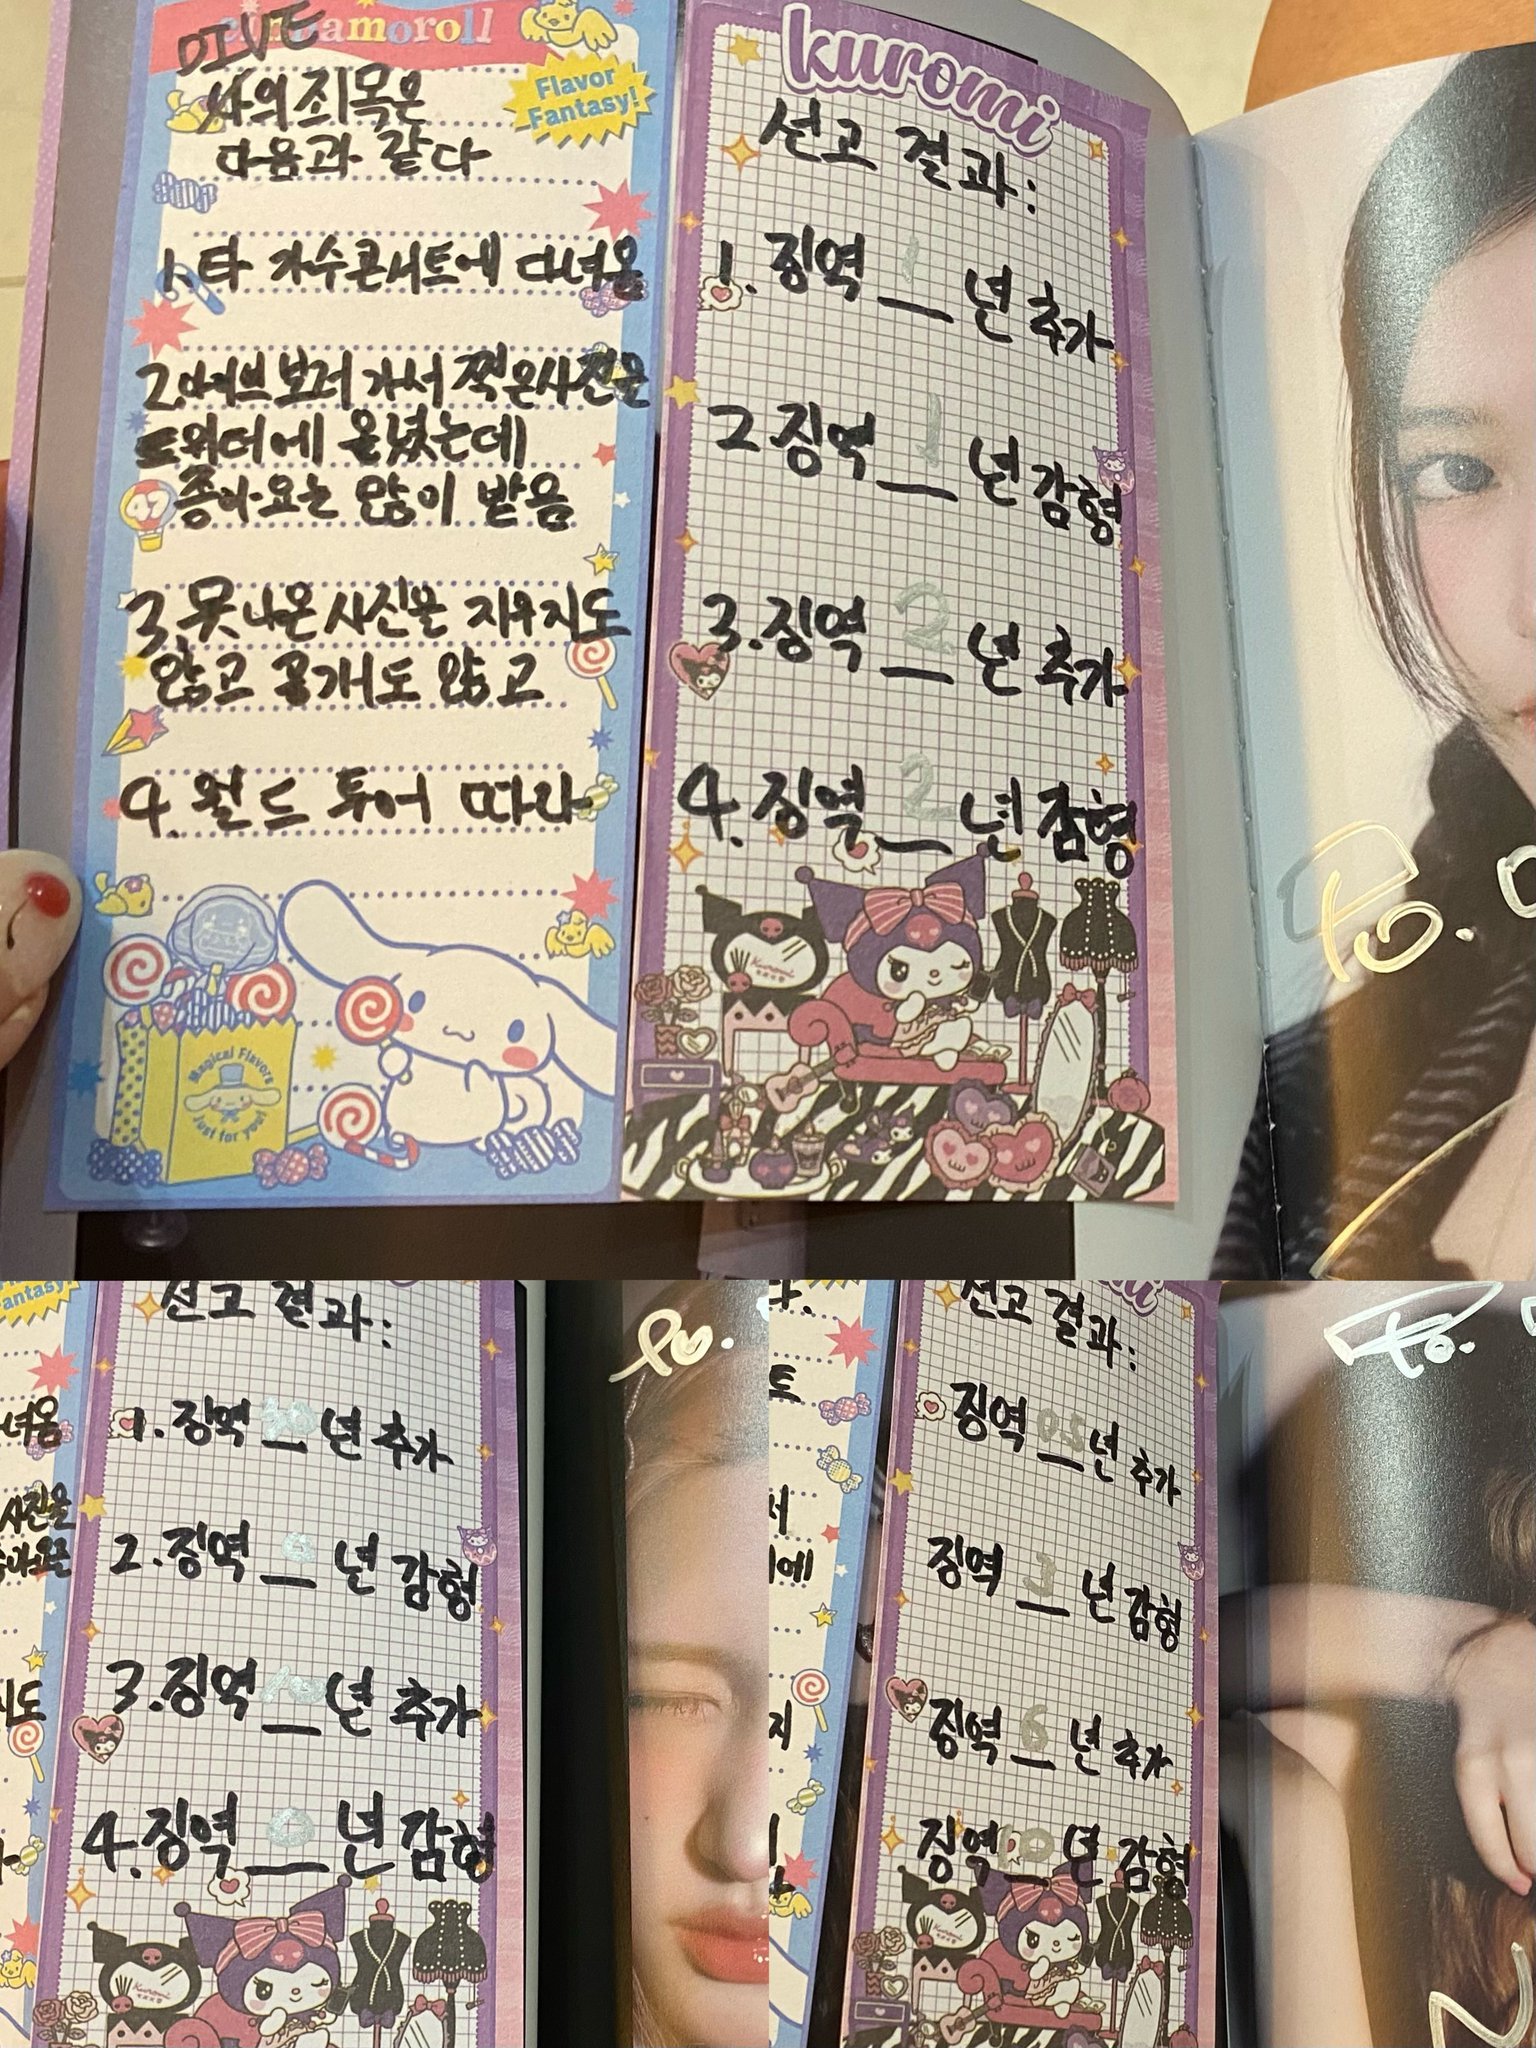 cinnamoroll
DIVE
Flavor
Fantasy!
사의 죄목은
다음과 같다
1. 타 가수콘서트에 다녀옴
2. 아이브보러 가서 찍은사진을
트위터에 올렸는데
좋아요는 많이 받음
3. 못나온사진을 지우지도
않고 공개도 않고
4. 월드 투어 따라
Magical Flavors
Just for you!
kuromi
선고 결과:
1. 징역 1 년 추가
2 징역 1 년 감형
3. 징역 2 년 추가
4. 징역 2 년 감형
Kuromi
To.
antasy!
선고 결과:
녀옴
1. 징역 30 년 추가
사진을
좋아요는
2. 징역 년 감형
지도
3. 징역 10 년 추가
4. 징역 0 년 감형
Kuromi
To.
선고 결과:
트
징역 0.5 년 추가
서
에
징역 3 년 감형
지
징역 6 년 추가
징역 년 감형
Kuromi
To.